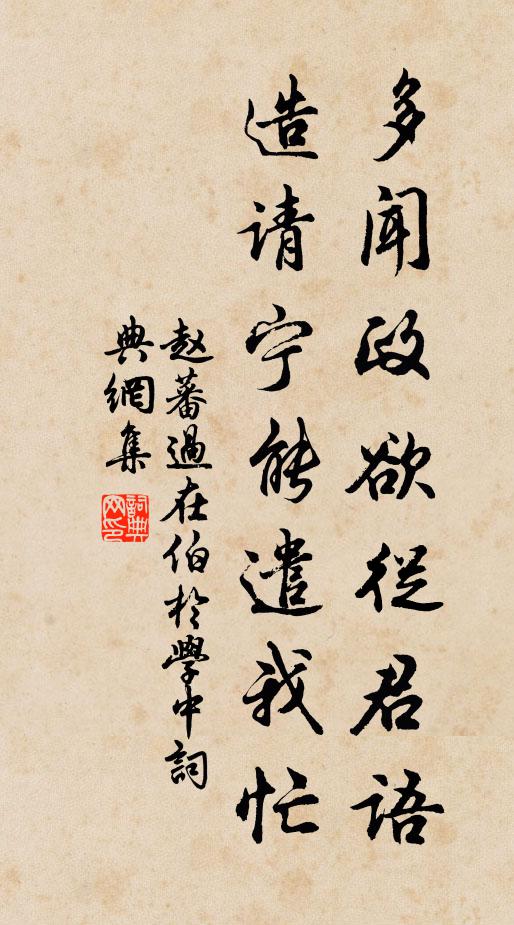 多闻政欲從君语
造请宁能遣我忙
赵蕃過在伯於學中詞
典網集
詞典网印